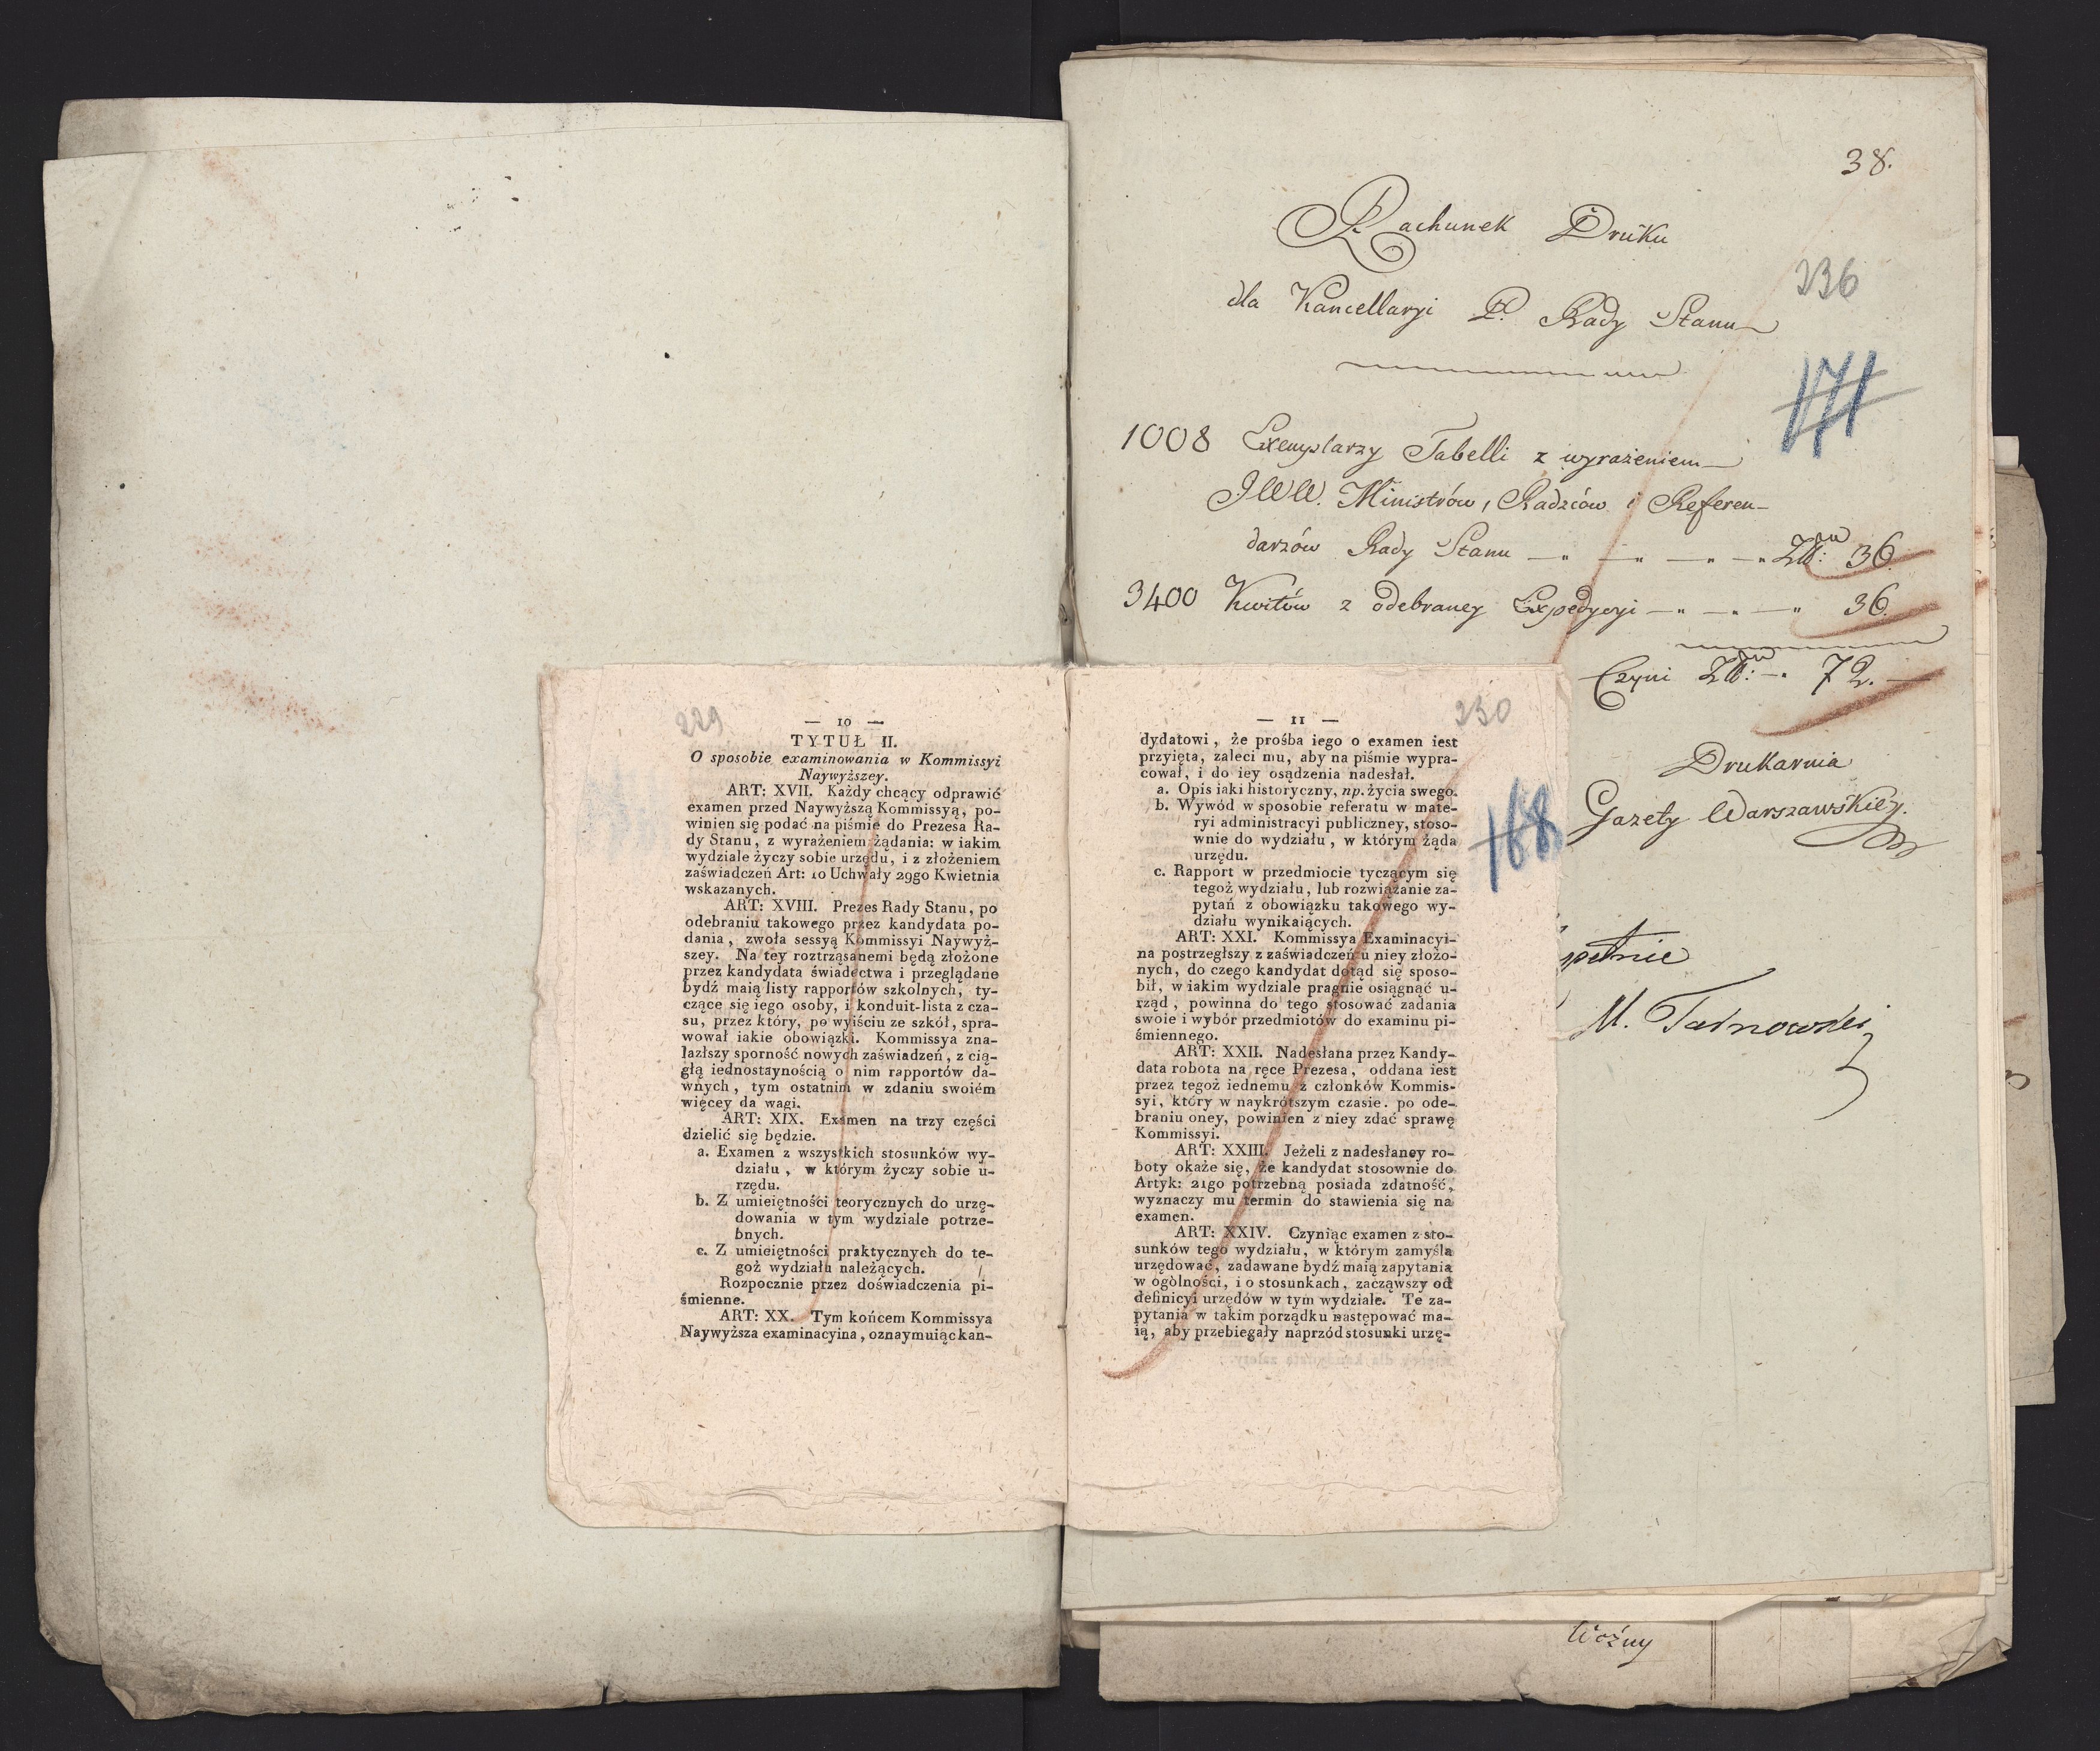 38.
Rachunek Druku
236
dla Kancellaryi P. Rady Stanu
171
1008 Exemplarzy Tabelli z wyrażeniem
JWW. Ministrów, Radzców i Referen-
darzów Rady Stanu — " — " — " — " Zł: 36.
3400 Kwitów z odebraney Expedycyi — " — " — " 36.
Czyni Zł: — " 72. —
Drukarnia
Gazety Warszawskiey.
M. Tarnowski
Woźny
229
— 10 —
TYTUŁ II.
O sposobie examinowania w Kommissyi
Naywyższey.
ART: XVII. Każdy chcący odprawić
examen przed Naywyższą Kommissyą, po-
winien się podać na piśmie do Prezesa Ra-
dy Stanu, z wyrażeniem żądania: w iakim
wydziale życzy sobie urzędu, i z złożeniem
zaświadczeń Art: 10 Uchwały 29go Kwietnia
wskazanych.
ART: XVIII. Prezes Rady Stanu, po
odebraniu takowego przez kandydata po-
dania, zwoła sessyą Kommissyi Naywyż-
szey. Na tey roztrząsanemi będą złożone
przez kandydata świadectwa i przeglądane
bydź maią listy rapportów szkolnych, ty-
czące się iego osoby, i konduit-lista z cza-
su, przez który, po wyiściu ze szkół, spra-
wował iakie obowiązki. Kommissya zna-
lazłszy sporność nowych zaświadzeń, z cią-
głą iednostaynością o nim rapportów da-
wnych, tym ostatnim w zdaniu swoiém
więcey da wagi.
ART: XIX. Examen na trzy części
dzielić się będzie.
a. Examen z wszystkich stosunków wy-
działu, w którym życzy sobie u-
rzędu.
b. Z umieiętności teorycznych do urzę-
dowania w tym wydziale potrze-
bnych.
c. Z umieiętności praktycznych do te-
goż wydziału należących.
Rozpocznie przez doświadczenia pi-
śmienne.
ART: XX. Tym końcem Kommissya
Naywyższa examinacyina, oznaymuiąc kan-
230
— 11 —
dydatowi, że prośba iego o examen iest
przyięta, zaleci mu, aby na piśmie wypra-
cował, i do iey osądzenia nadesłał.
a. Opis iaki historyczny, np. życia swego.
b. Wywód w sposobie referatu w mate-
ryi administracyi publiczney, stoso-
wnie do wydziału, w którym żąda
urzędu.
c. Rapport w przedmiocie tyczącym się
tegoż wydziału, lub rozwiązanie za-
pytań z obowiązku takowego wy-
działu wynikaiących.
168
ART: XXI. Kommissya Examinacyi-
na postrzegłszy z zaświadczeń u niey złożo-
nych, do czego kandydat dotąd się sposo-
bił, w iakim wydziale pragnie osiągnąć u-
rząd, powinna do tego stosować zadania
swoie i wybór przedmiotów do examinu pi-
śmiennego.
ART: XXII. Nadesłana przez Kandy-
data robota na ręce Prezesa, oddana iest
przez tegoż iednemu z członków Kommis-
syi, który w naykrótszym czasie. po ode-
braniu oney, powinien z niey zdać sprawę
Kommissyi.
ART: XXIII. Jeżeli z nadesłaney ro-
boty okaże się, że kandydat stosownie do
Artyk: 21go potrzebną posiada zdatność,
wyznaczy mu termin do stawienia się na
examen.
ART: XXIV. Czyniąc examen z sto-
sunków tego wydziału, w którym zamyśla
urzędować, zadawane bydź maią zapytania
w ogólności, i o stosunkach, zacząwszy od
definicyi urzędów w tym wydziale. Te za-
pytania w takim porządku następować ma-
ią, aby przebiegały naprzód stosunki urzę-